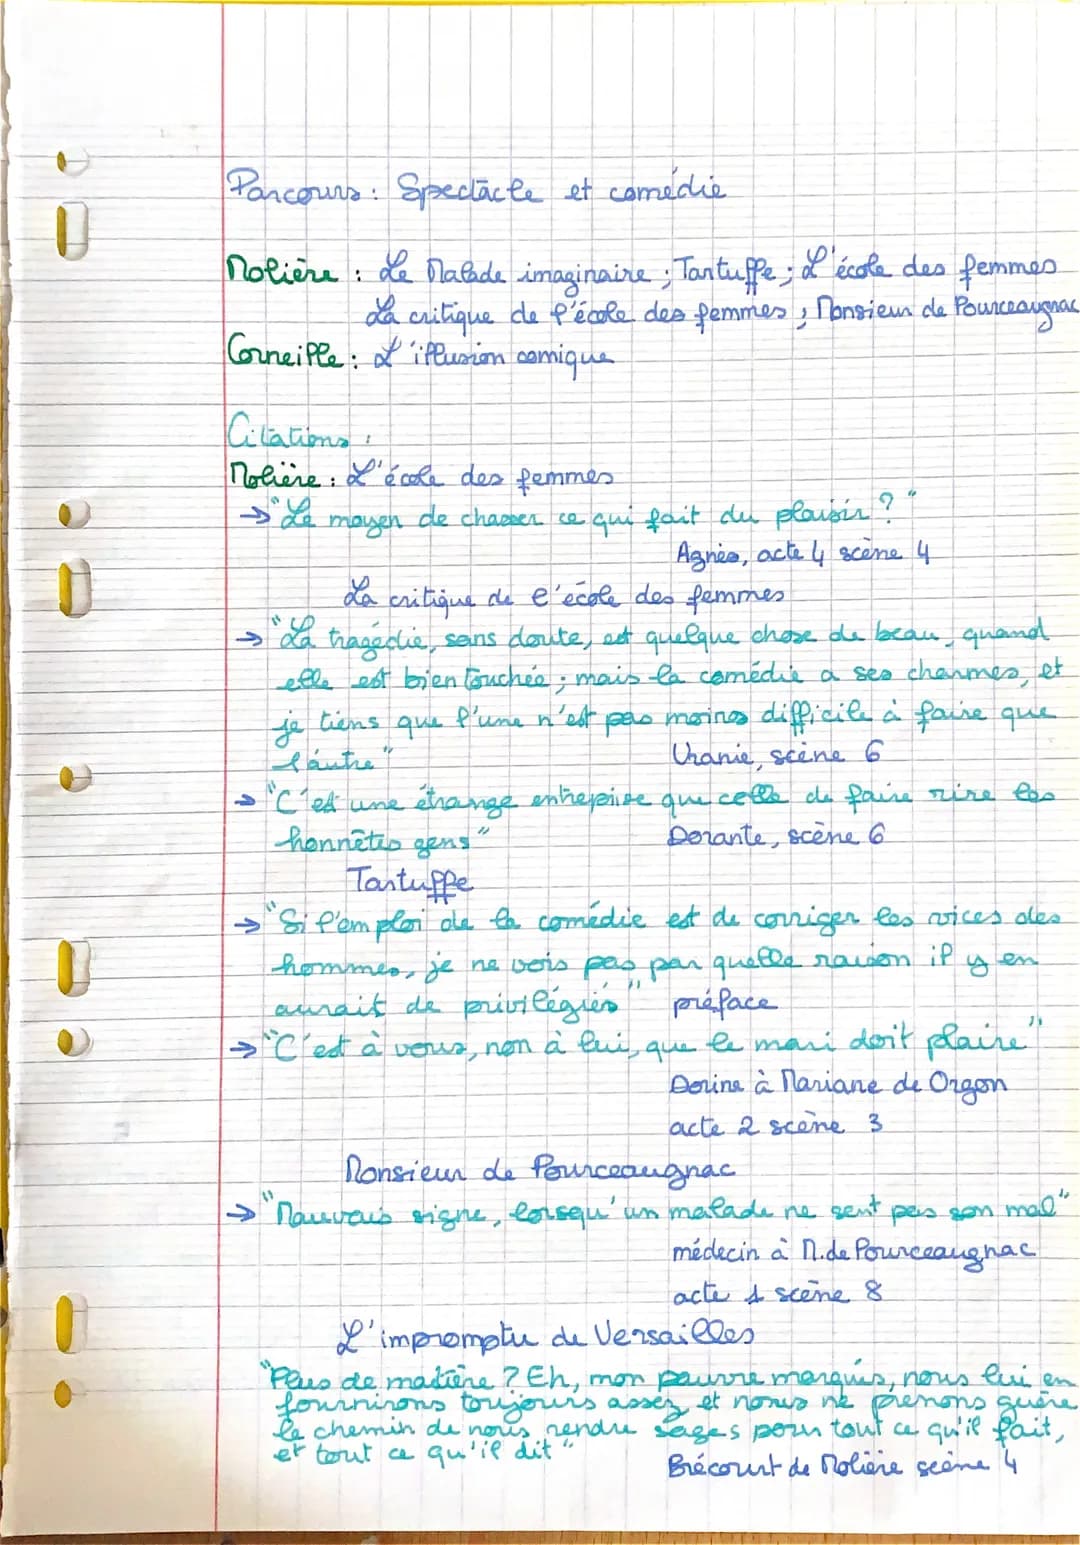 Parcours : Spectacle et comédie
Molière : Le Malade imaginaire ; Tartuffe ; L'école des femmes
La critique de l'école des femmes ; Monsieur de Pourceaugnac
Corneille : L'illusion comique
Citations :
Molière : L'école des femmes
→ "Le moyen de chasser ce qui fait du plaisir ? "
Agnès, acte 4 scène 4
La critique de l'école des femmes
→ "La tragédie, sans doute, est quelque chose de beau, quand
elle est bien touchée ; mais la comédie a ses charmes, et
je tiens que l'une n'est pas moins difficile à faire que
l'autre"
Uranie, scène 6
→ "C'est une étrange entreprise que celle de faire rire les
honnêtes gens"
Dorante, scène 6
Tartuffe
→ "Si l'emploi de la comédie est de corriger les vices des
hommes, je ne vois pas par quelle raison il y en
aurait de privilégiés" préface
→ "C'est à vous, non à lui, que le mari doit plaire"
Dorine à Mariane de Orgon
acte 2 scène 3
Monsieur de Pourceaugnac
→ "Mauvais signe, lorsqu'un malade ne sent pas son mal"
médecin à M. de Pourceaugnac
acte 1 scène 8
L'impromptu de Versailles
"Plus de matière ? Eh, mon pauvre marquis, nous lui en
fournirons toujours assez, et nous ne prenons guère
le chemin de nous rendre sages pour tout ce qu'il fait,
et tout ce qu'il dit"
Brécourt de Molière scène 4